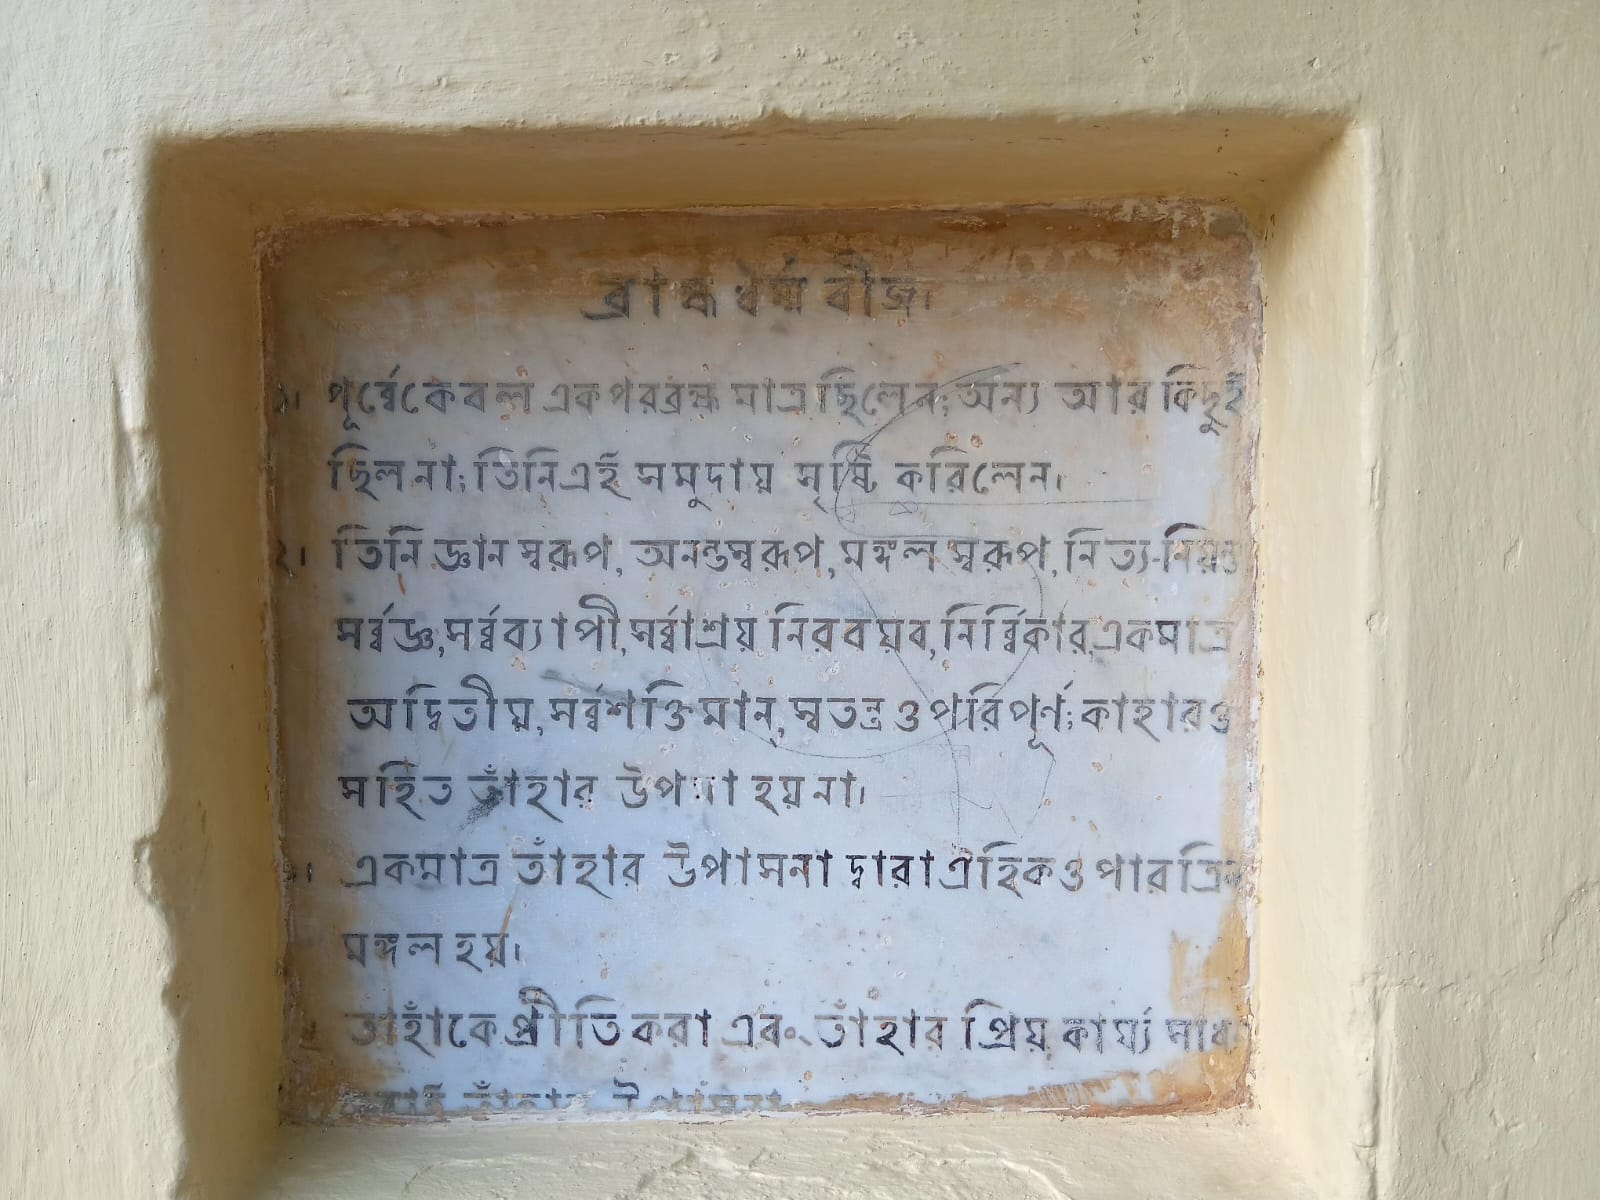 ব্রাহ্মধর্ম্ম বীজ।
১। পূর্ব্বে কেবল এক পরব্রহ্ম মাত্র ছিলেন; অন্য আর কিছুই
ছিল না; তিনি এই সমুদায় সৃষ্টি করিলেন।
২। তিনি জ্ঞান স্বরূপ, অনন্তস্বরূপ, মঙ্গল স্বরূপ, নিত্য-নিয়ন্তা
সর্ব্বজ্ঞ, সর্ব্বব্যাপী, সর্ব্বাশ্রয় নিরবয়ব, নির্ব্বিকার, একমাত্র
অদ্বিতীয়, সর্ব্বশক্তিমান্, স্বতন্ত্র ও পরিপূর্ণ; কাহারও
সহিত তাঁহার উপমা হয় না।
৩। একমাত্র তাঁহার উপাসনা দ্বারা ঐহিক ও পারত্রিক
মঙ্গল হয়।
তাহাঁকে প্রীতি করা এবং তাঁহার প্রিয় কার্য্য সাধন
তাঁহার উপাসনা